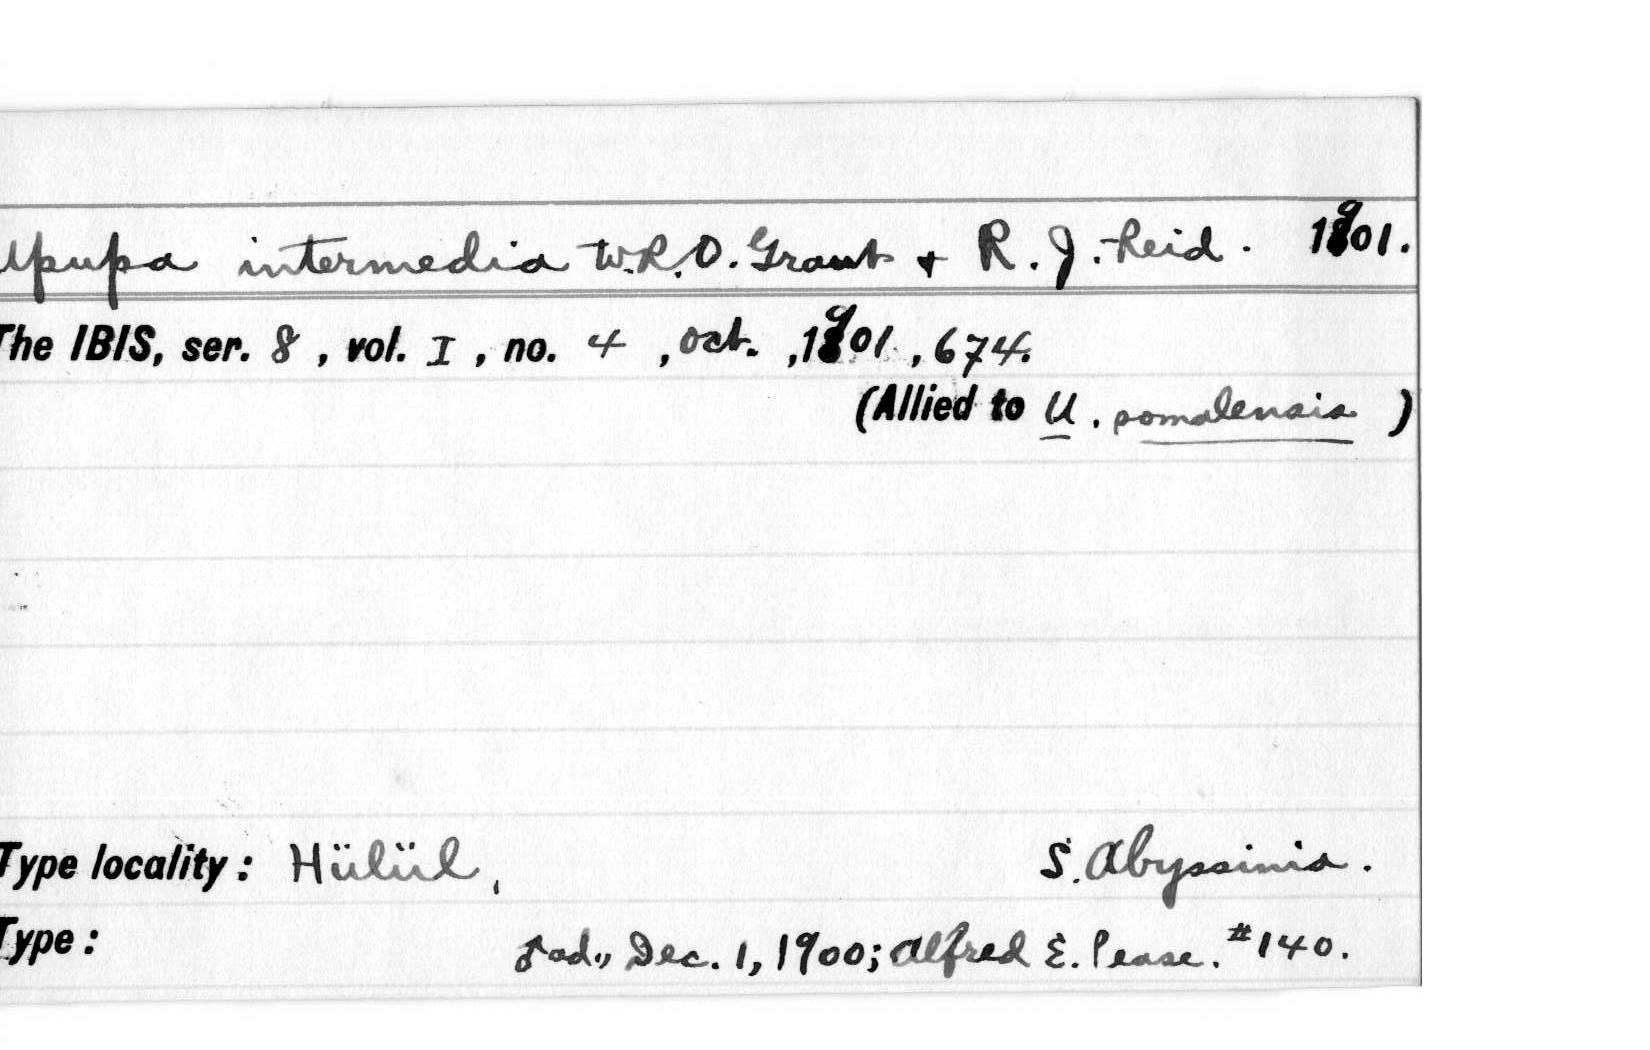 Upupa intermedia W.R.O. Grant + R.J. Reid. 1901.
The IBIS, ser. 8, vol. I, no. 4, oct., 1901, 674.
(Allied to U. somalensis)
Type locality: Hülül, S. Abyssinia.
Type: ♂ ad., Dec. 1, 1900; Alfred E. Pease. #140.